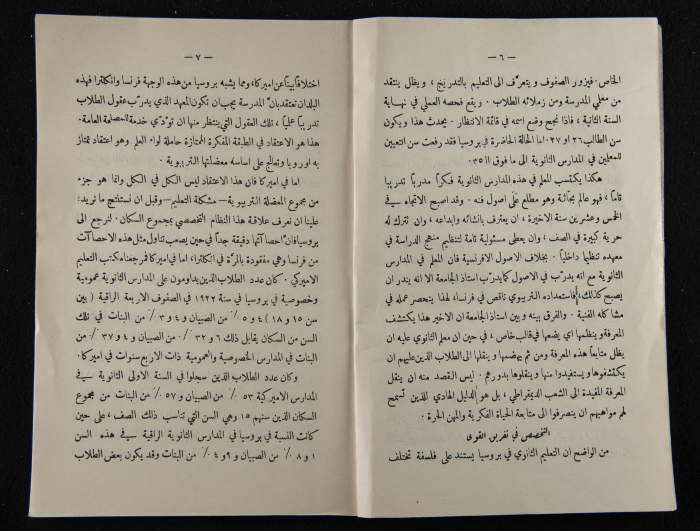 — ٦ —
الخاص . فيزور الصفوف و يتعرّف الى التعليم بالتدريج ، و يظل ينتقد
من معلمي المدرسة ومن زملائه الطلاب . و يقع فحصه العملي في نهاية
السنة الثانية ، فاذا نجح وضع اسمه في قائمة الانتظار . يحدث هذا و يكون
سن الطالب ٢٦ او ٢٧ . اما الحالة الحاضرة في بروسيا فقد رفعت سن التعيين
للمعلمين في المدارس الثانوية الى ما فوق الـ ٣٥ .
هكذا يكتسب المعلم في هذه المدارس الثانوية فكراً مدرباً تدريباً
تاماً ، فهو عالم بحاثة وهو مطلع على اصول فنه . وقد اصبح الاتجاه في
الخمس وعشرين سنة الاخيرة ، ان يعترف بانشائه وابداعه ، وان تترك له
حرية كبيرة في الصف ، وان يعطى مسئولية تامة لتنظيم منهج الدراسة في
معهده تنظيماً داخلياً . بخلاف الاصول الافرنسية فان المعلم في المدارس
الثانوية مع انه يدرّب في الاصول كما يدرب استاذ الجامعة الا انه يندر ان
يصبح كذلك ، فاستعداده التربوي ناقص في فرنسا ، لهذا ينحصر عمله في
مشاكله الفنية . والفرق بينه وبين استاذ الجامعة ان الاخير هذا يكتشف
المعرفة و ينظمها اي يضعها في قالب خاص ، في حين ان معلم الثانوي عليه ان
يظل متابعاً هذه المعرفة ومن ثم يهضمها و ينقلها الى الطلاب الذين عليهم ان
يكتشفوها و يستفيدوا منها و ينقلوها بدورهم . ليس القصد منه ان ينقل
المعرفة المفيدة الى الشعب الديمقراطي ، بل هو الدليل الهادي للذين تسمح
لهم مواهبهم ان ينصرفوا الى متابعة الحياة الفكرية والمهن الحرة .
التخصص في تفريس القوى
من الواضح ان التعليم الثانوي في بروسيا يستند على فلسفة تختلف
— ٧ —
اختلافاً بيناً عن اميركا ، ومما يشبه بروسيا من هذه الوجهة فرنسا وانكلترا فهذه
البلدان تعتقد بان المدرسة يجب ان تكون المعهد الذي يدرّب عقول الطلاب
تدريباً عملياً ، تلك العقول التي ينتظر منها ان تؤدّي خدمة للمصلحة العامة .
هذا هو الاعتقاد في الطبقة المفكرة الممتازة حاملة لواء العلم وهو اعتقاد تمتاز
به اوروبا وتعالج على اساسه معضلتها التربوية .
اما في اميركا فان هذا الاعتقاد ليس الكل في الكل وانما هو جزء
من مجموع المعضلة التربوية – مشكلة التعليم – وقبل ان نستنتج ما نريد ،
علينا ان نعرف علاقة هذا النظام التخصصي بمجموع السكان . لنرجع الى
بروسيا فان احصاآتها دقيقة جداً في حين يصعب تناول مثل هذه الاحصاآت
من فرنسا وهي مفقودة بالمرّة في انكلترا ، اما في اميركا فمرجعنا مكتب التعليم
الاميركي . كان عدد الطلاب الذين يداومون على المدارس الثانوية عمومية
وخصوصية في بروسيا في سنة ١٩٢٢ في الصفوف الاربعة الراقية ( بين
سن ١٥ و ١٨ ) ٤ و ٥ ٪ من الصبيان و ٤ و ٣ ٪ من البنات في تلك
السن من السكان يقابل ذلك ٦ و ٣٢ ٪ من الصبيان و ٤ و ٣٧ ٪ من
البنات في المدارس الخصوصية والعمومية ذات الاربع سنوات في اميركا .
وكان عدد الطلاب الذين سجلوا في السنة الاولى الثانوية في
المدارس الاميركية ٥٣ ٪ من الصبيان و ٥٧ ٪ من البنات من مجموع
السكان الذين سنهم ١٥ وهي السن التي تناسب ذلك الصف ، على حين
كانت النسبة في بروسيا في المدارس الثانوية الراقية في هذه السن
١ و ٨ ٪ من الصبيان و ٩ و ٤ ٪ من البنات وقد يكون بعض الطلاب